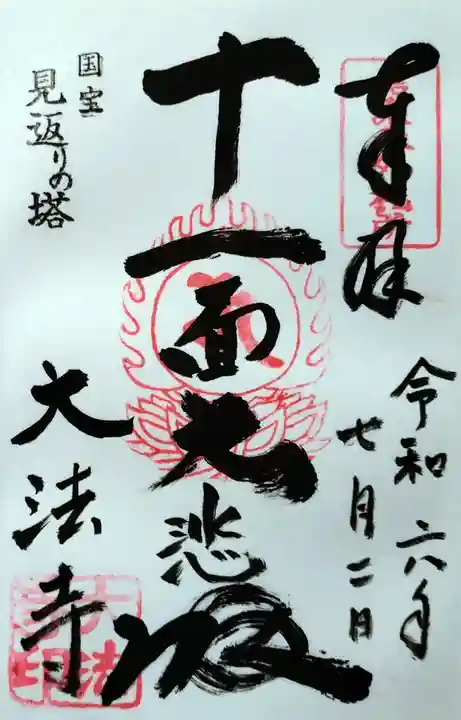 奉拝
令和六年
七月二日
十一面大悲殿
国宝
見返りの塔
大法寺